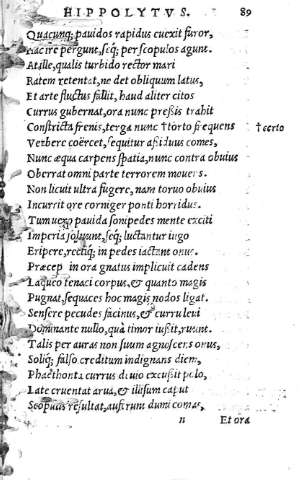 HIPPOLYTVS. 89
Quacunq; pauidos rapidus euexit furor,
Hac ire pergunt, seq; per scopulos agunt.
At ille, qualis turbido rector mari
Ratem retentat, ne det obliquum latus,
Et arte fluctus fallit, haud aliter citos
Currus gubernat, ora nunc pressis trahit
Constricta frenis, terga nunc †torto frequens †certo
Verbere coërcet, sequitur assiduus comes,
Nunc æqua carpens spatia, nunc contra obuius
Oberrat omni parte terrorem mouens.
Non licuit ultra fugere, nam toruo obuius
Incurrit ore corniger ponti horridus.
Tum uero pauida sonipedes mente exciti
Imperia soluunt, seq; luctantur iugo
Eripere, rectiq; in pedes iactant onus.
Præcep in ora gnatus implicuit cadens
Laqueo tenaci corpus, & quanto magis
Pugnat, sequaces hoc magis nodos ligat.
Sensere pecudes facinus, & curru leui
Dominante nullo, quà timor iussit, ruunt.
Talis per auras non suum agnoscens onus,
Soliq; falso creditum indignans diem,
Phaethonta currus deuio excussit polo,
Late cruentat arua, & illisum caput
Scopulis resultat, auferunt dumi comas,
n Et ora